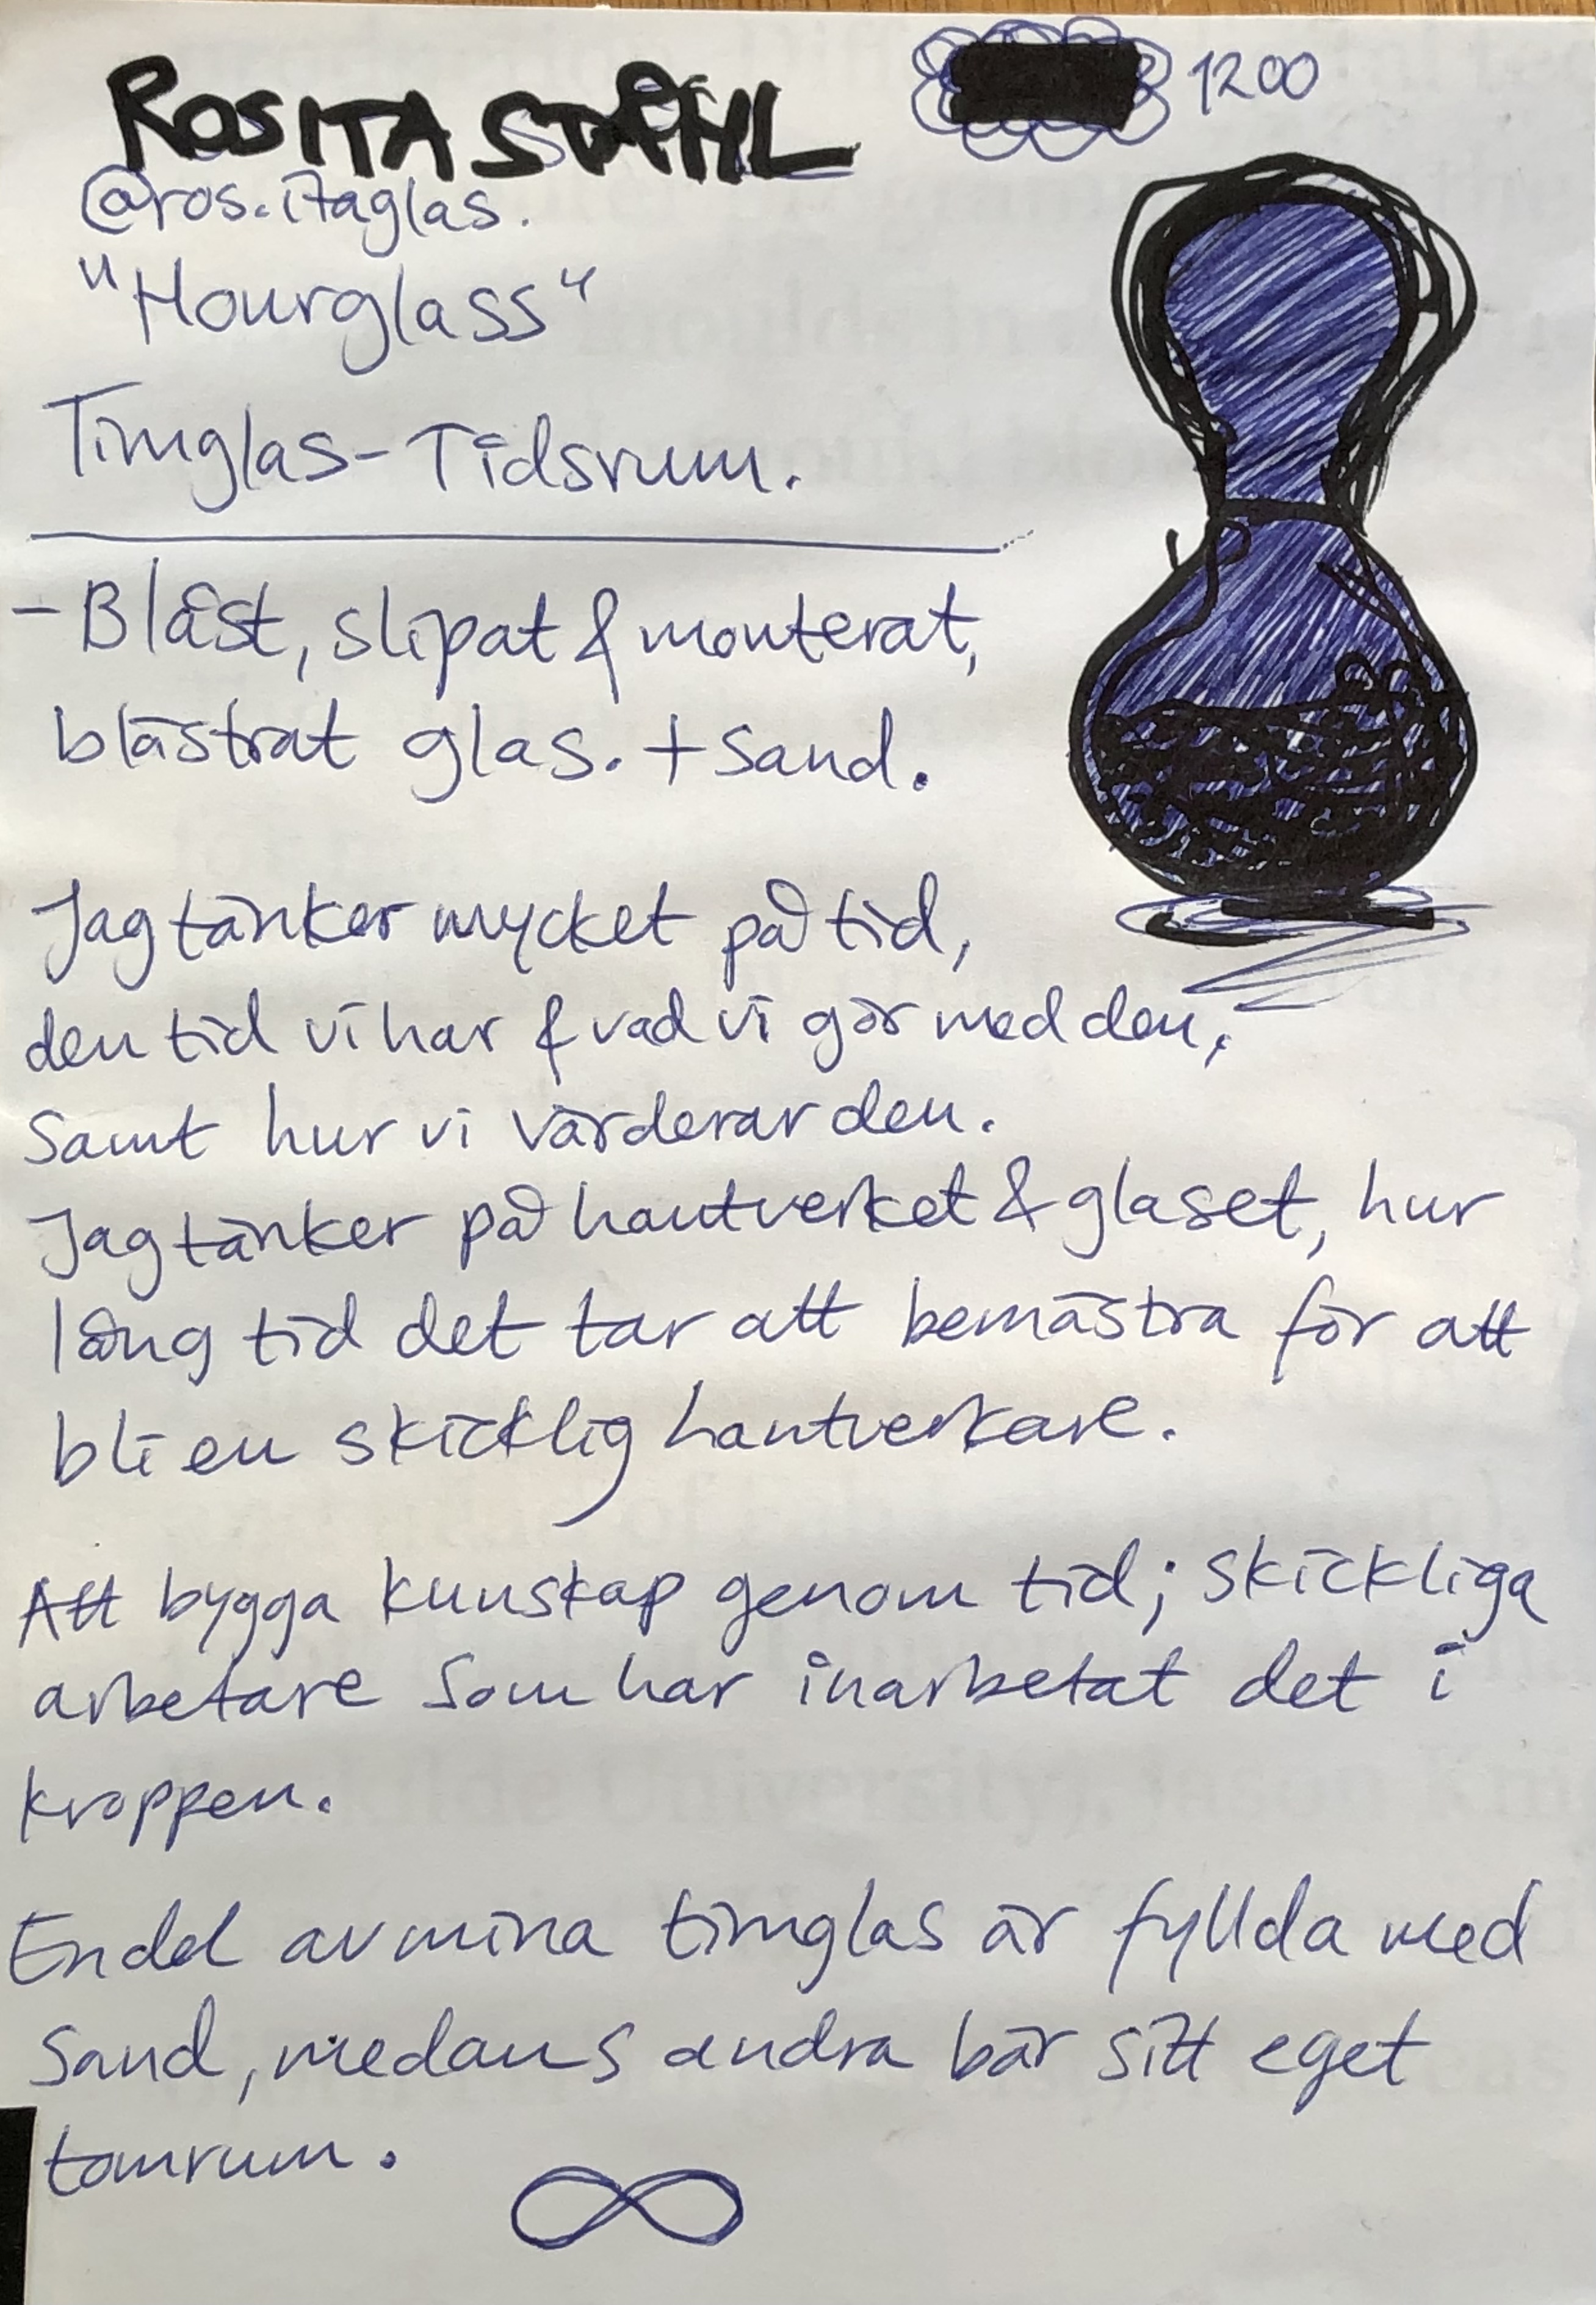 ROSITA STÅHL 1200
@ros.itaglas.
"Hourglass"
Timglas-Tidsrum.
- Blåst, slipat & monterat,
blästrat glas. + Sand.
Jag tänker mycket på tid,
den tid vi har & vad vi gör med den,
Samt hur vi värderar den.
Jag tänker på hantverket & glaset, hur
lång tid det tar att bemästra för att
bli en skicklig hantverkare.
Att bygga kunskap genom tid; skickliga
arbetare som har inarbetat det i
kroppen.
En del av mina timglas är fyllda med
Sand, medans andra bär sitt eget
tomrum.
∞